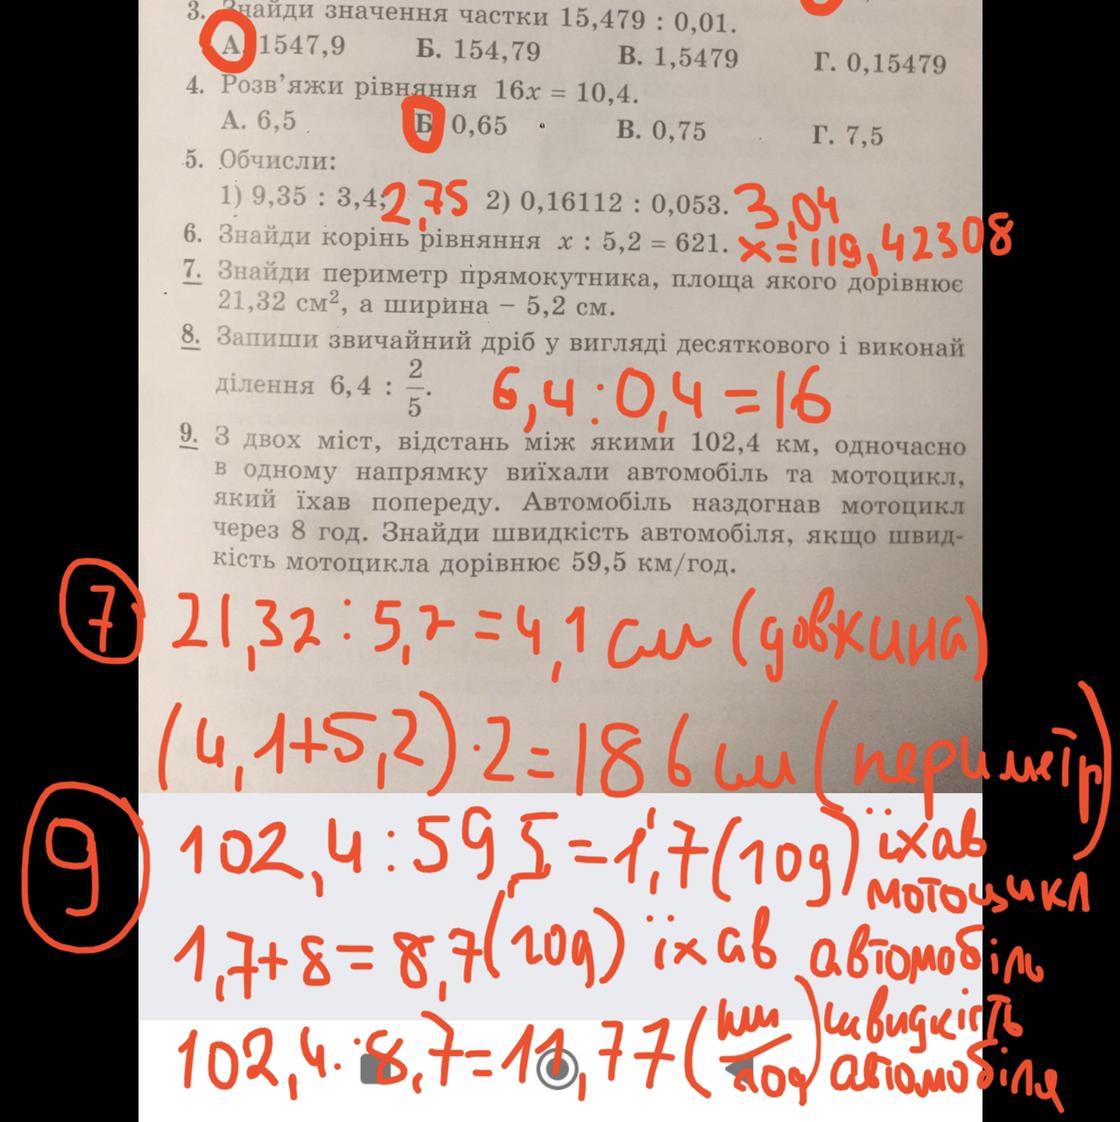 3. Знайди значення частки 15,479 : 0,01.
А. 1547,9 Б. 154,79 В. 1,5479 Г. 0,15479
4. Розв'яжи рівняння 16x = 10,4.
А. 6,5 Б 0,65 В. 0,75 Г. 7,5
5. Обчисли:
1) 9,35 : 3,4; 2,75 2) 0,16112 : 0,053. 3,04
6. Знайди корінь рівняння x : 5,2 = 621. x=119,42308
7. Знайди периметр прямокутника, площа якого дорівнює
21,32 см², а ширина – 5,2 см.
8. Запиши звичайний дріб у вигляді десяткового і виконай
ділення 6,4 : 2/5. 6,4:0,4=16
9. З двох міст, відстань між якими 102,4 км, одночасно
в одному напрямку виїхали автомобіль та мотоцикл,
який їхав попереду. Автомобіль наздогнав мотоцикл
через 8 год. Знайди швидкість автомобіля, якщо швид-
кість мотоцикла дорівнює 59,5 км/год.
7 21,32:5,2=4,1 см (довжина)
(4,1+5,2)·2=18 6 см (периметр)
9 102,4:59,5=1,7(год) їхав
мотоцикл
1,7+8=8,7(год) їхав автомобіль
102,4:8,7=11,77(км/год) швидкість
автомобіля